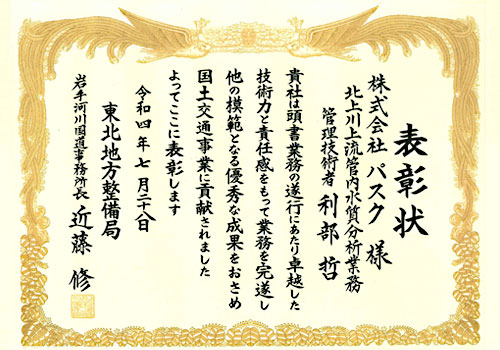 表彰状
株式会社 パスク 様
北上川上流管内水質分析業務
管理技術者 利部 哲
貴社は頭書業務の遂行にあたり卓越した
技術力と責任感をもって業務を完遂し
他の模範となる優秀な成果をおさめ
国土交通事業に貢献されました
よってここに表彰します
令和四年七月二十八日
東北地方整備局
岩手河川国道事務所長 近藤 修